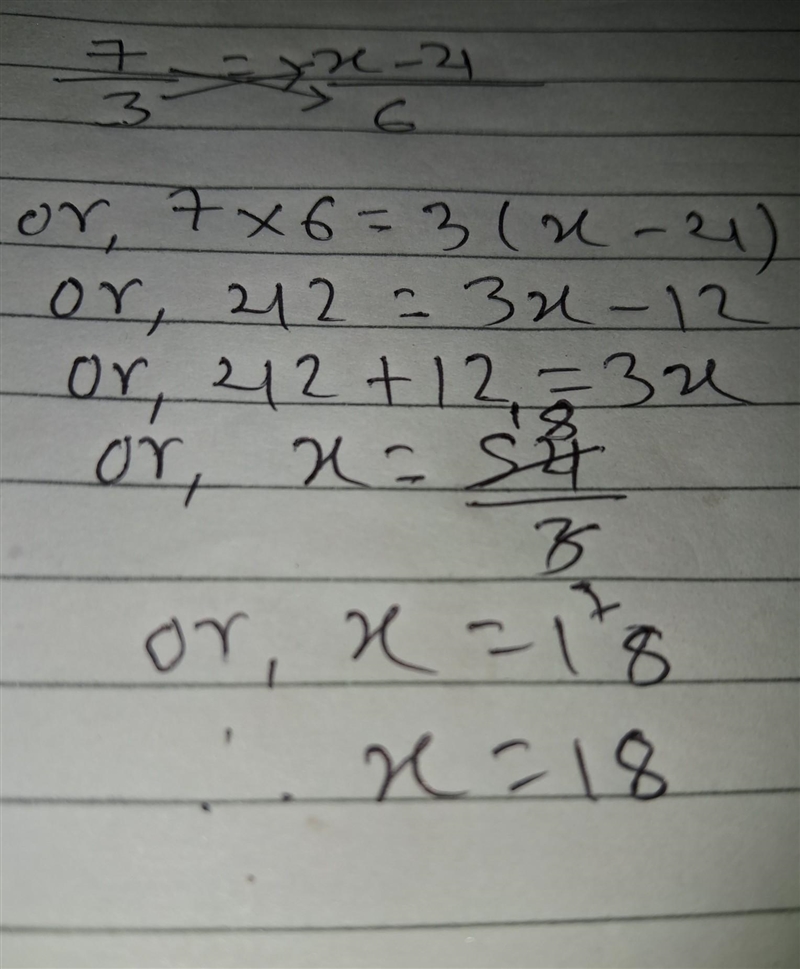 7/3 = x-4/6
or, 7×6=3(x-4)
or, 42 = 3x-12
or, 42+12=3x
or, x = 54/3 18
or, x=18
∴ x=18